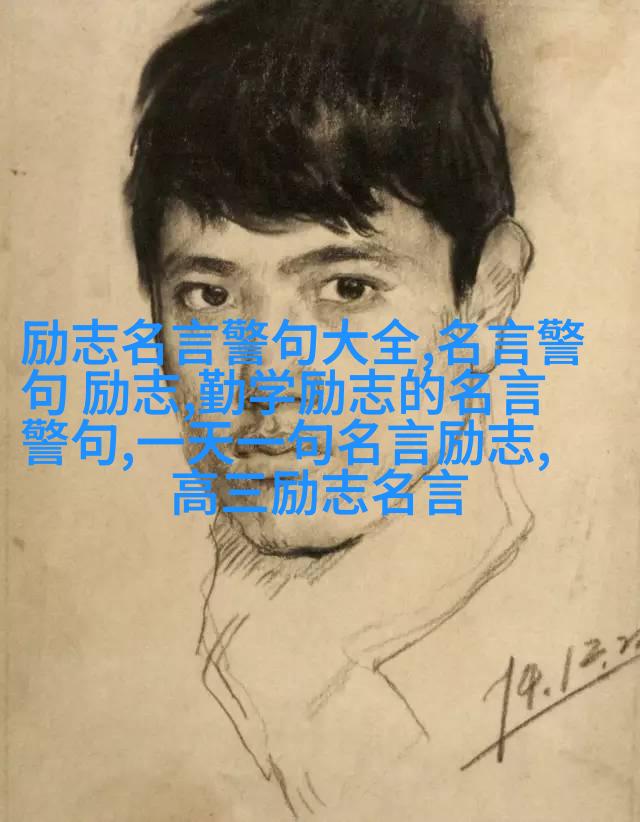 励志名言警句大全,名言警
句 励志,勤学励志的名言
警句,一天一句名言励志,
高三励志名言